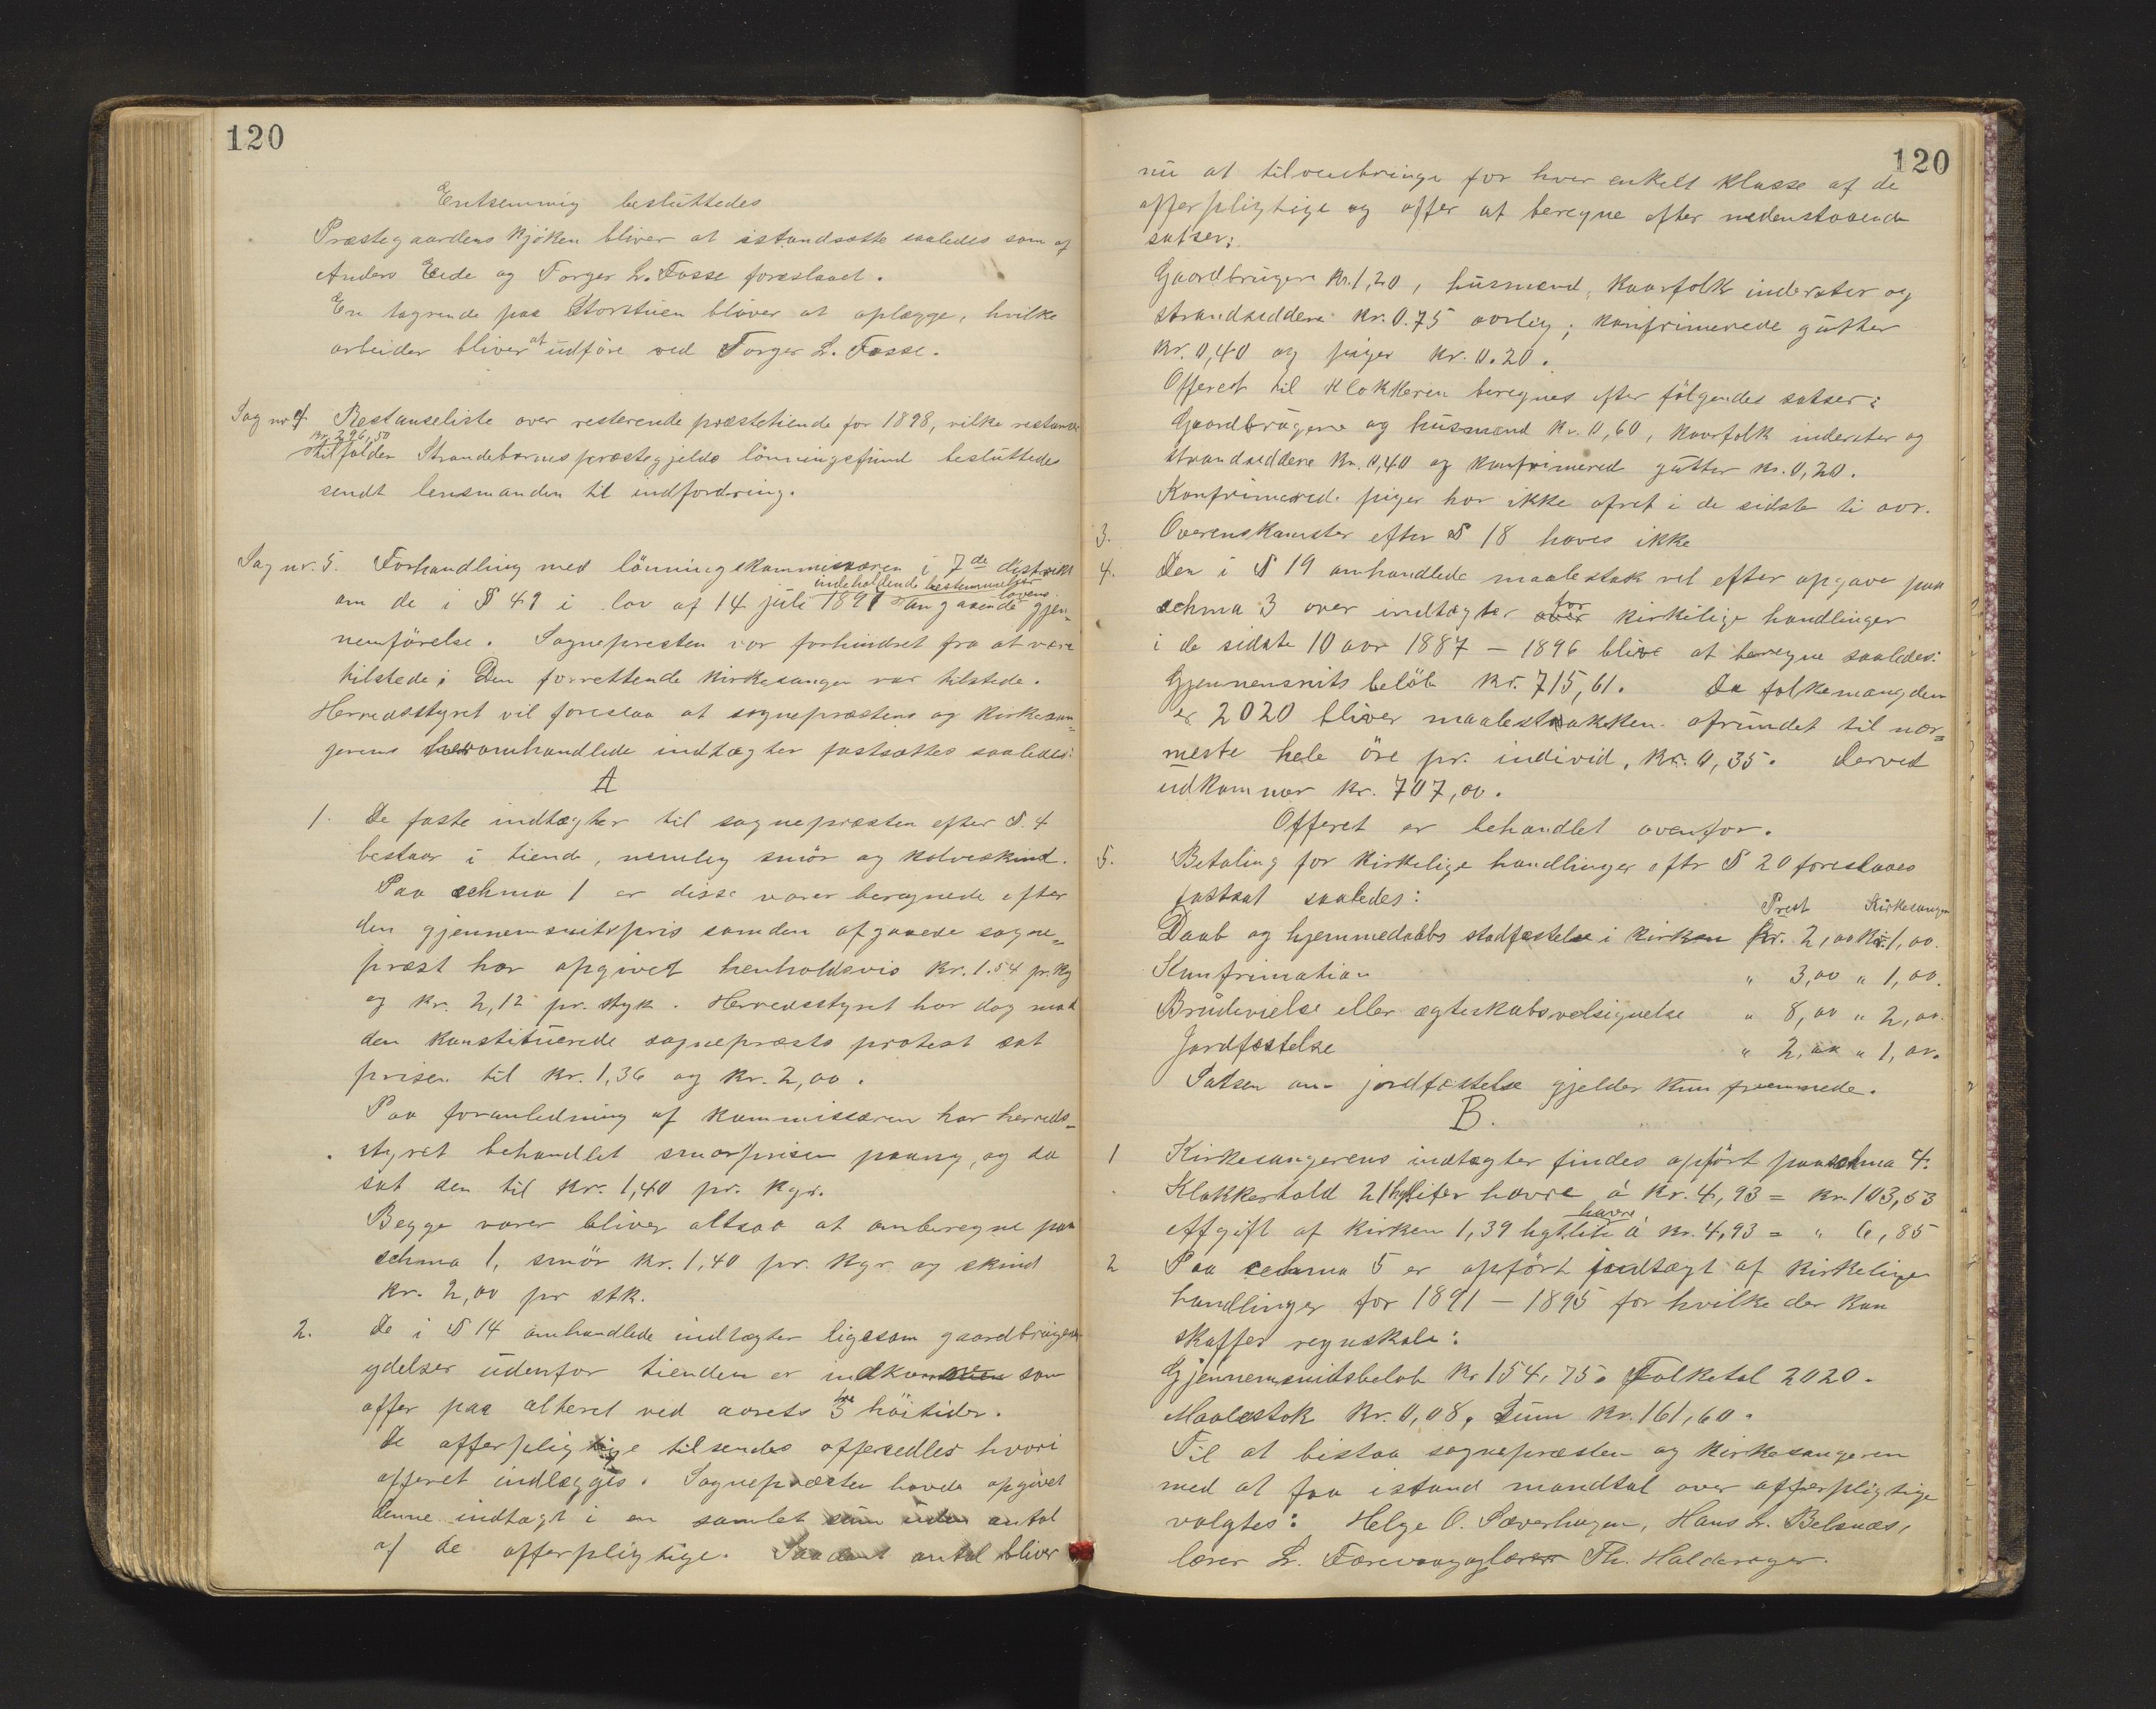 120
Entsemmig besluttedes
Præstegaardens kjøken bliver at istandsætte saaledes som af
Anders Eide og Torger L. Fosse foreslaaet.
En tagrende paa Storstuen bliver at oplægge, hvilke
arbeider bliver at udføre ved Torger L. Fosse.
Sag nr 4. Restanseliste over resterende præstetiende for 1898, vilke restanse
kr. 296,50
tilfalder Strandebarms præstegjelds lønningsfund besluttedes
sendt lensmanden til indfordring.
Sag nr. 5. Forhandling med lønningskommissæren i 7de distrikt
indeholdende bestemmelser lovens
om de i § 49 i lov af 14 juli 1897 angaaende gjen-
nemførelse. Sognepresten var forhindret fra at være
tilstede; Den forrettende kirkesanger var tilstede.
Herredsstyret vil foreslaa at sognepræstens og kirkesan-
gerens heromhandlede indtægter fastsættes saaledes:
A
1. De faste indtægter til sognepræsten efter §. 4
bestaar i tiende, nemlig smør og kalveskind.
Paa schma 1 er disse varer beregnede efter
den gjennemsnitspris somden afgaaede sogne-
præst har opgivet henholdsvis kr. 1.54 pr. kg
og kr. 2,12 pr. styk. Herredsstyret har dog mod
den konstituerede sognepræsts protest sat
prisen til kr. 1,36 og kr. 2,00.
Paa foranledning af kommissæren har herreds-
styret behandlet smørprisen paany, og da
sat den til kr. 1,40 pr. kgr.
Begge varer bliver altsaa at omberegne paa
schma 1, smør kr. 1,40 pr. kgr. og skind
kr. 2,00 pr stk.
2. De i § 14 omhandlede indtægter ligesom gaardbrugernes
ydelser udenfor tienden er indkommen som
offer paa alteret ved aarets 3 høitider.
De offerpligtige tilsendes offersedler hvori
offeret indlægges. Sognepræsten havde opgivet
denne indtægt i en samlet sum uden antal
af de offerpligtige. Saadant antal bliver
120
nu at tilveiebringe for hver enkelt klasse af de
offerpligtige og offer at beregne efter nedenstaaende
satser:
Gaardbrugere kr. 1,20, husmænd, kaarfolk inderster og
strandsiddere kr. 0.75 aarlig; konfrimerede gutter
kr. 0,40 og piger kr. 0.20.
Offeret til klokkeren beregnes efter følgendes satser:
Gaardbrugere og husmænd kr. 0,60, kaarfolk inderster og
strandsiddere kr. 0,40 og konfrimered gutter kr. 0,20.
Konfrimerede piger har ikke ofret i de sidste ti aar.
3. Overenskomster efter § 18 haves ikke
4. Den i § 19 omhandlede maalestok vil efter opgave paa
schma 3 over indtægter over for kirkelige handlinger
i de sidste 10 aar 1887 – 1896 blive at beregne saaledes:
Gjennemsnits beløb kr. 715,61. Da folkemængden
er 2020 bliver maalestokken afrundet til nær-
meste hele øre pr. individ, kr. 0,35. Derved
udkommer kr. 707,00.
Offeret er behandlet ovenfor.
5. Betaling for kirkelige handlinger eftr § 20 foreslaaes
fastsat saaledes:
Prest Kirkesanger
Daab og hjemmedaabs stadfæstelse i kirken kr. 2,00 kr. 1,00.
Kunfrimation " 3,00 " 1,00.
Brudevielse eller ægteskabsvelsignelse " 8,00 " 2,00.
Jordfæstelse " 2,00 " 1,00.
Satsen om jordfæstelse gjelder kun fremmede.
B.
1 Kirkesangerens indtægter findes opført paa schma 4.
Klokkertold 21 hgtliter havre á kr. 4,93 = kr. 103,53
havre
Afgift af kirken 1,39 hgtlite á kr. 4,93 = " 6,85
2 Paa schma 5 er opført indtægt af kirkelige
handlinger for 1891 – 1895 for hvilke der kan
skaffes regnskab:
Gjennemsnitsbeløb kr 154,75. Folketal 2020.
Maalestok kr. 0,08, Sum kr. 161,60.
Til at bistaa sognepræsten og kirkesangeren
med at faa istand mandtal over offerpligtige
valgtes: Helge O. Sæverhagen, Hans L. Belsnæs,
lærer L. Færevaag og lærer Th. Haldorager.